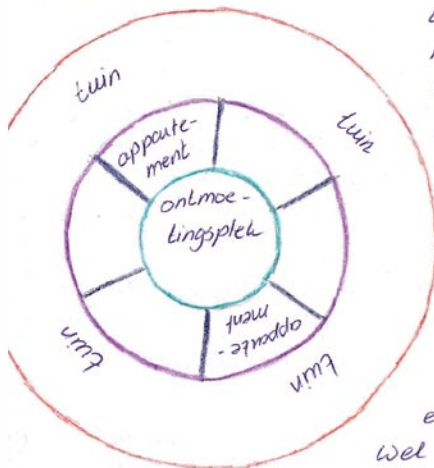 tuin
tuin
appoute-
ment
ontmoe-
tingsplek
appoute-
ment
tuin
tuin
e
wel